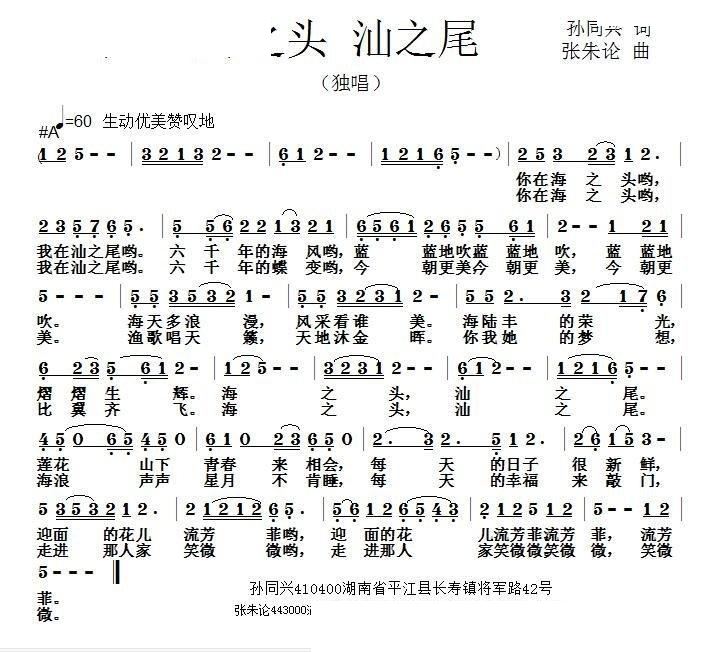 之头 汕之尾
孙同兴 词
张朱论 曲
（独唱）
#A ♩=60 生动优美赞叹地
(1 2 5 - - | 3 2 1 3 2 - - | 6 1 2 - - | 1 2 1 6 5 - - ) | 2 5 3 2 3 1 2 . |
你在海 之 头哟，
你在海 之 头哟，
2 3 5 7 6 5 . | 5 5 6 2 2 1 3 2 1 | 6 5 6 1 2 6 5 5 6 1 | 2 - - 1 2 1 |
我在汕之尾哟。 六 千 年的海 风哟，蓝 蓝地吹蓝 蓝地 吹，蓝 蓝地
我在汕之尾哟。 六 千 年的蝶 变哟，今 朝更美今 朝更 美，今 朝更
5 - - - | 5 5 3 5 3 2 1 - | 5 5 3 2 3 1 2 - | 5 5 2 . 3 | 2 1 7 6 |
吹。 海天多浪 漫， 风采看谁 美。 海陆丰 的荣 光，
美。 渔歌唱天 籁， 天地沐金 晖。 你我她 的梦 想，
6 2 3 5 6 1 | 1 2 5 - | 3 2 3 1 2 - | 6 1 2 - - | 1 2 1 6 5 - - |
熠 熠 生 辉。 海 之 头， 汕 之 尾。
比 翼 齐 飞。 海 之 头， 汕 之 尾。
4 5 0 6 5 4 5 0 | 6 1 0 2 3 6 5 | 2 . 3 2 . 5 1 2 . | 2 6 1 5 3 - |
莲花 山下 青春 来 相会， 每 天 的日子 很 新 鲜，
海浪 声声 星月 不 肯睡， 每 天 的幸福 来 敲 门，
5 3 5 3 2 1 2 | 2 1 2 1 2 6 5 . | 5 6 1 2 6 5 4 3 | 5 2 1 2 6 5 5 1 2 |
迎面 的花儿 流芳 菲哟， 迎 面的花 儿流芳菲流芳 菲， 流芳
走进 那人家 笑微 微哟， 走 进那人 家笑微微笑微 微， 笑微
5 - - - ‖
菲。
微。
孙同兴410400湖南省平江县长寿镇将军路42号
张朱论443000